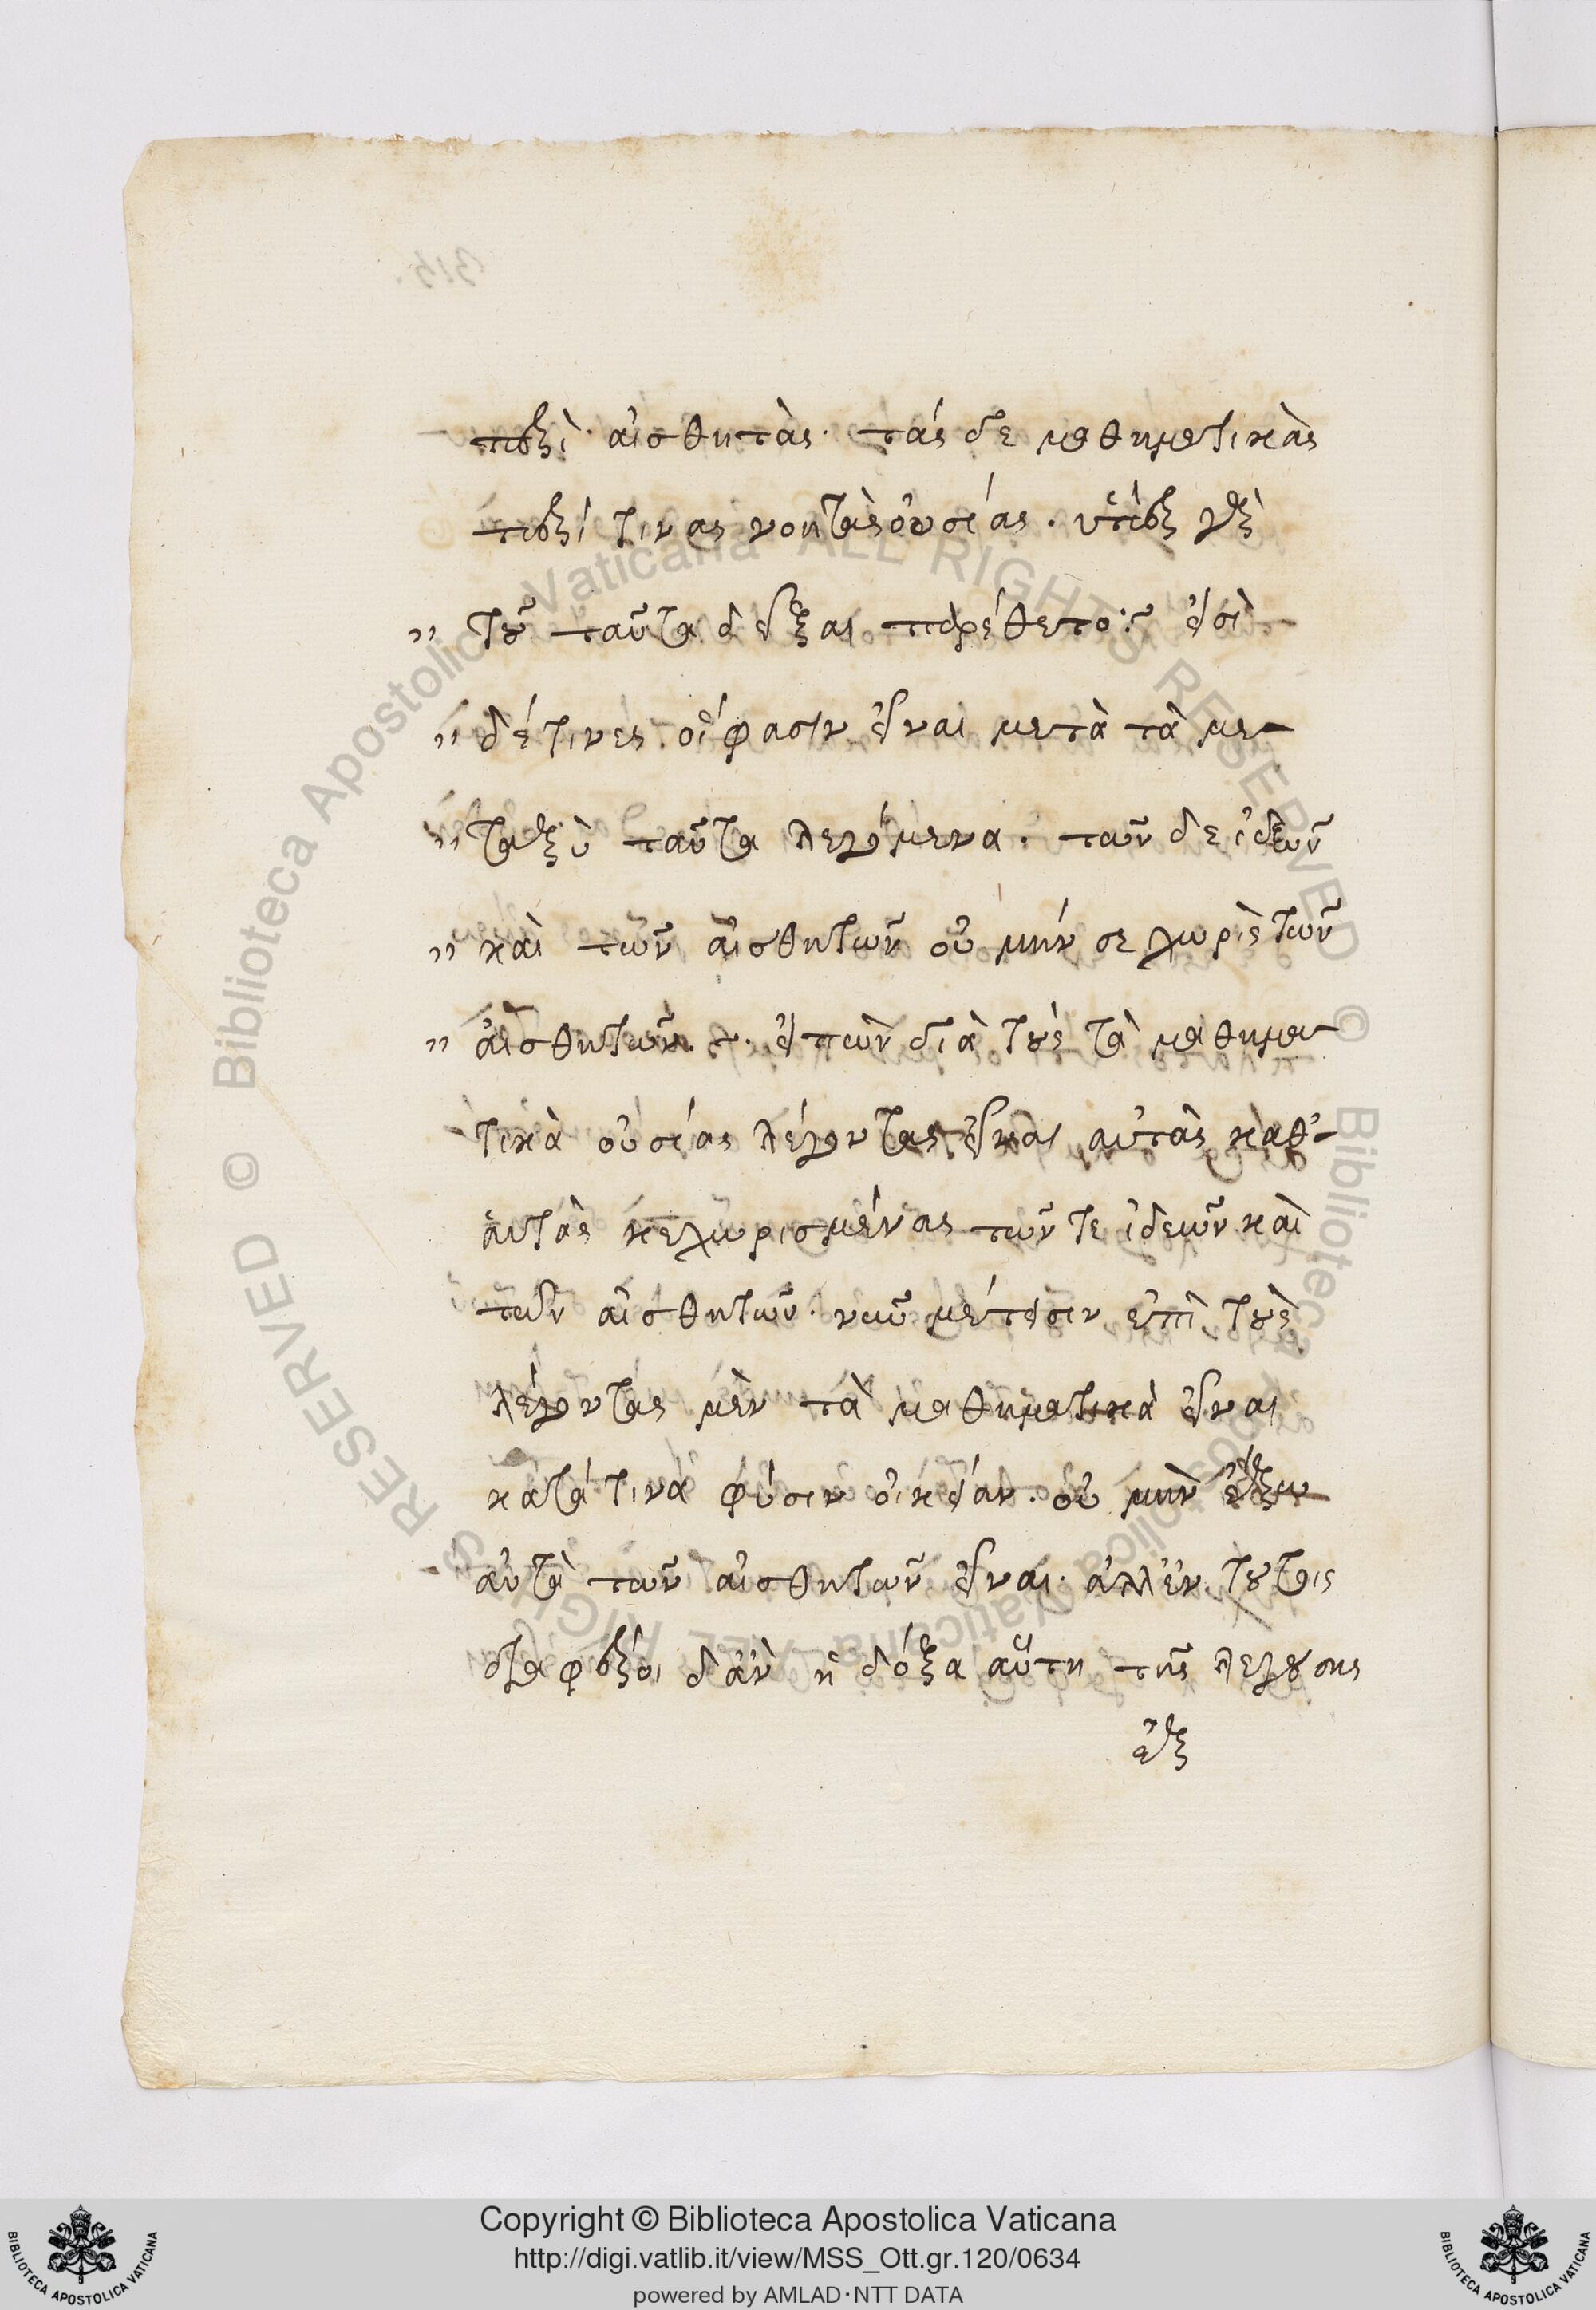 περὶ αἰσθητὰς· τάς δε μαθηματικὰς
περί τινας νοητὰς οὐσίας. ὑπὲρ γὰρ
τοῦ ταῦτα δεῖξαι παρέθετο· εἰσὶ
δέ τινες οἵ φασιν εἶναι μετὰ τὰ με
ταξὺ ταῦτα λεγόμενα. τῶν δε ἰδεῶν
καὶ τῶν αἰσθητῶν οὐ μήν σε χωρὶς τῶν
αἰσθητῶν. εἰπὼν διὰ τοὺς τὰ μαθημα
τικὰ οὐσίας λέγοντας εἶναι αὐτὰς καθ'
αὑτὰς κεχωρισμένας τῶν τε ἰδεῶν καὶ
τῶν αἰσθητῶν. νῦν μέτεισιν ἐπὶ τοὺς
λέγοντας μὲν τὰ μαθηματικὰ εἶναι
κατά τινα φύσιν οἰκείαν. οὐ μὴν ἔξω
αὐτὰ τῶν αἰσθητῶν εἶναι. ἀλλ' ἐν τούτοις
διαφέροι δ' ἂν ἡ δόξα αὕτη τῆς λεγούσης
ἐξ
Copyright © Biblioteca Apostolica Vaticana
http://digi.vatlib.it/view/MSS_Ott.gr.120/0634
powered by AMLAD·NTT DATA
BIBLIOTECA APOSTOLICA VATICANA
BIBLIOTECA APOSTOLICA VATICANA
© Biblioteca Apostolica Vaticana ALL RIGHTS RESERVED © Biblioteca Apostolica Vaticana ALL RIGHTS RESERVED